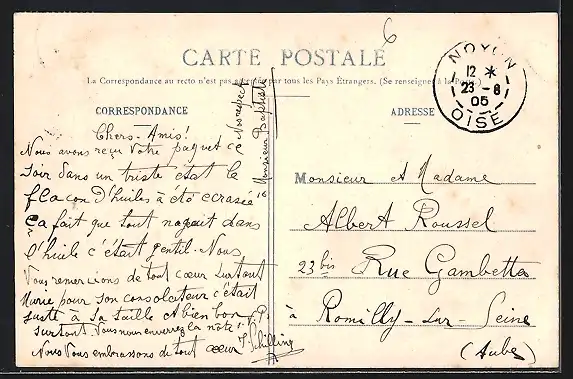 6
CARTE POSTALE
La Correspondance au recto n'est pas acceptée par tous les Pays Étrangers. (Se renseigner à la Poste).
NOYON
12 *
23 - 8
05
OISE
CORRESPONDANCE
ADRESSE
Chers Amis!
Nous avons reçu votre paquet ce
soir Dans un triste état le
flacon D'huiles à été ecrasée
ça fait que tout nageait dans
l'huile c'était gentil. Nous
Vous remercions de tout cœur surtout
Marie pour son consolateur c'était
juste à sa taille et bien bon
surtout. Vous nous enverrez la note S.V.P.
Nous Vous embrassons de tout cœur J. Schilling
Monsieur Baptiste
Monsieur et Madame
Albert Roussel
23 bis Rue Gambetta
à Romilly-sur-Seine
(Aube)